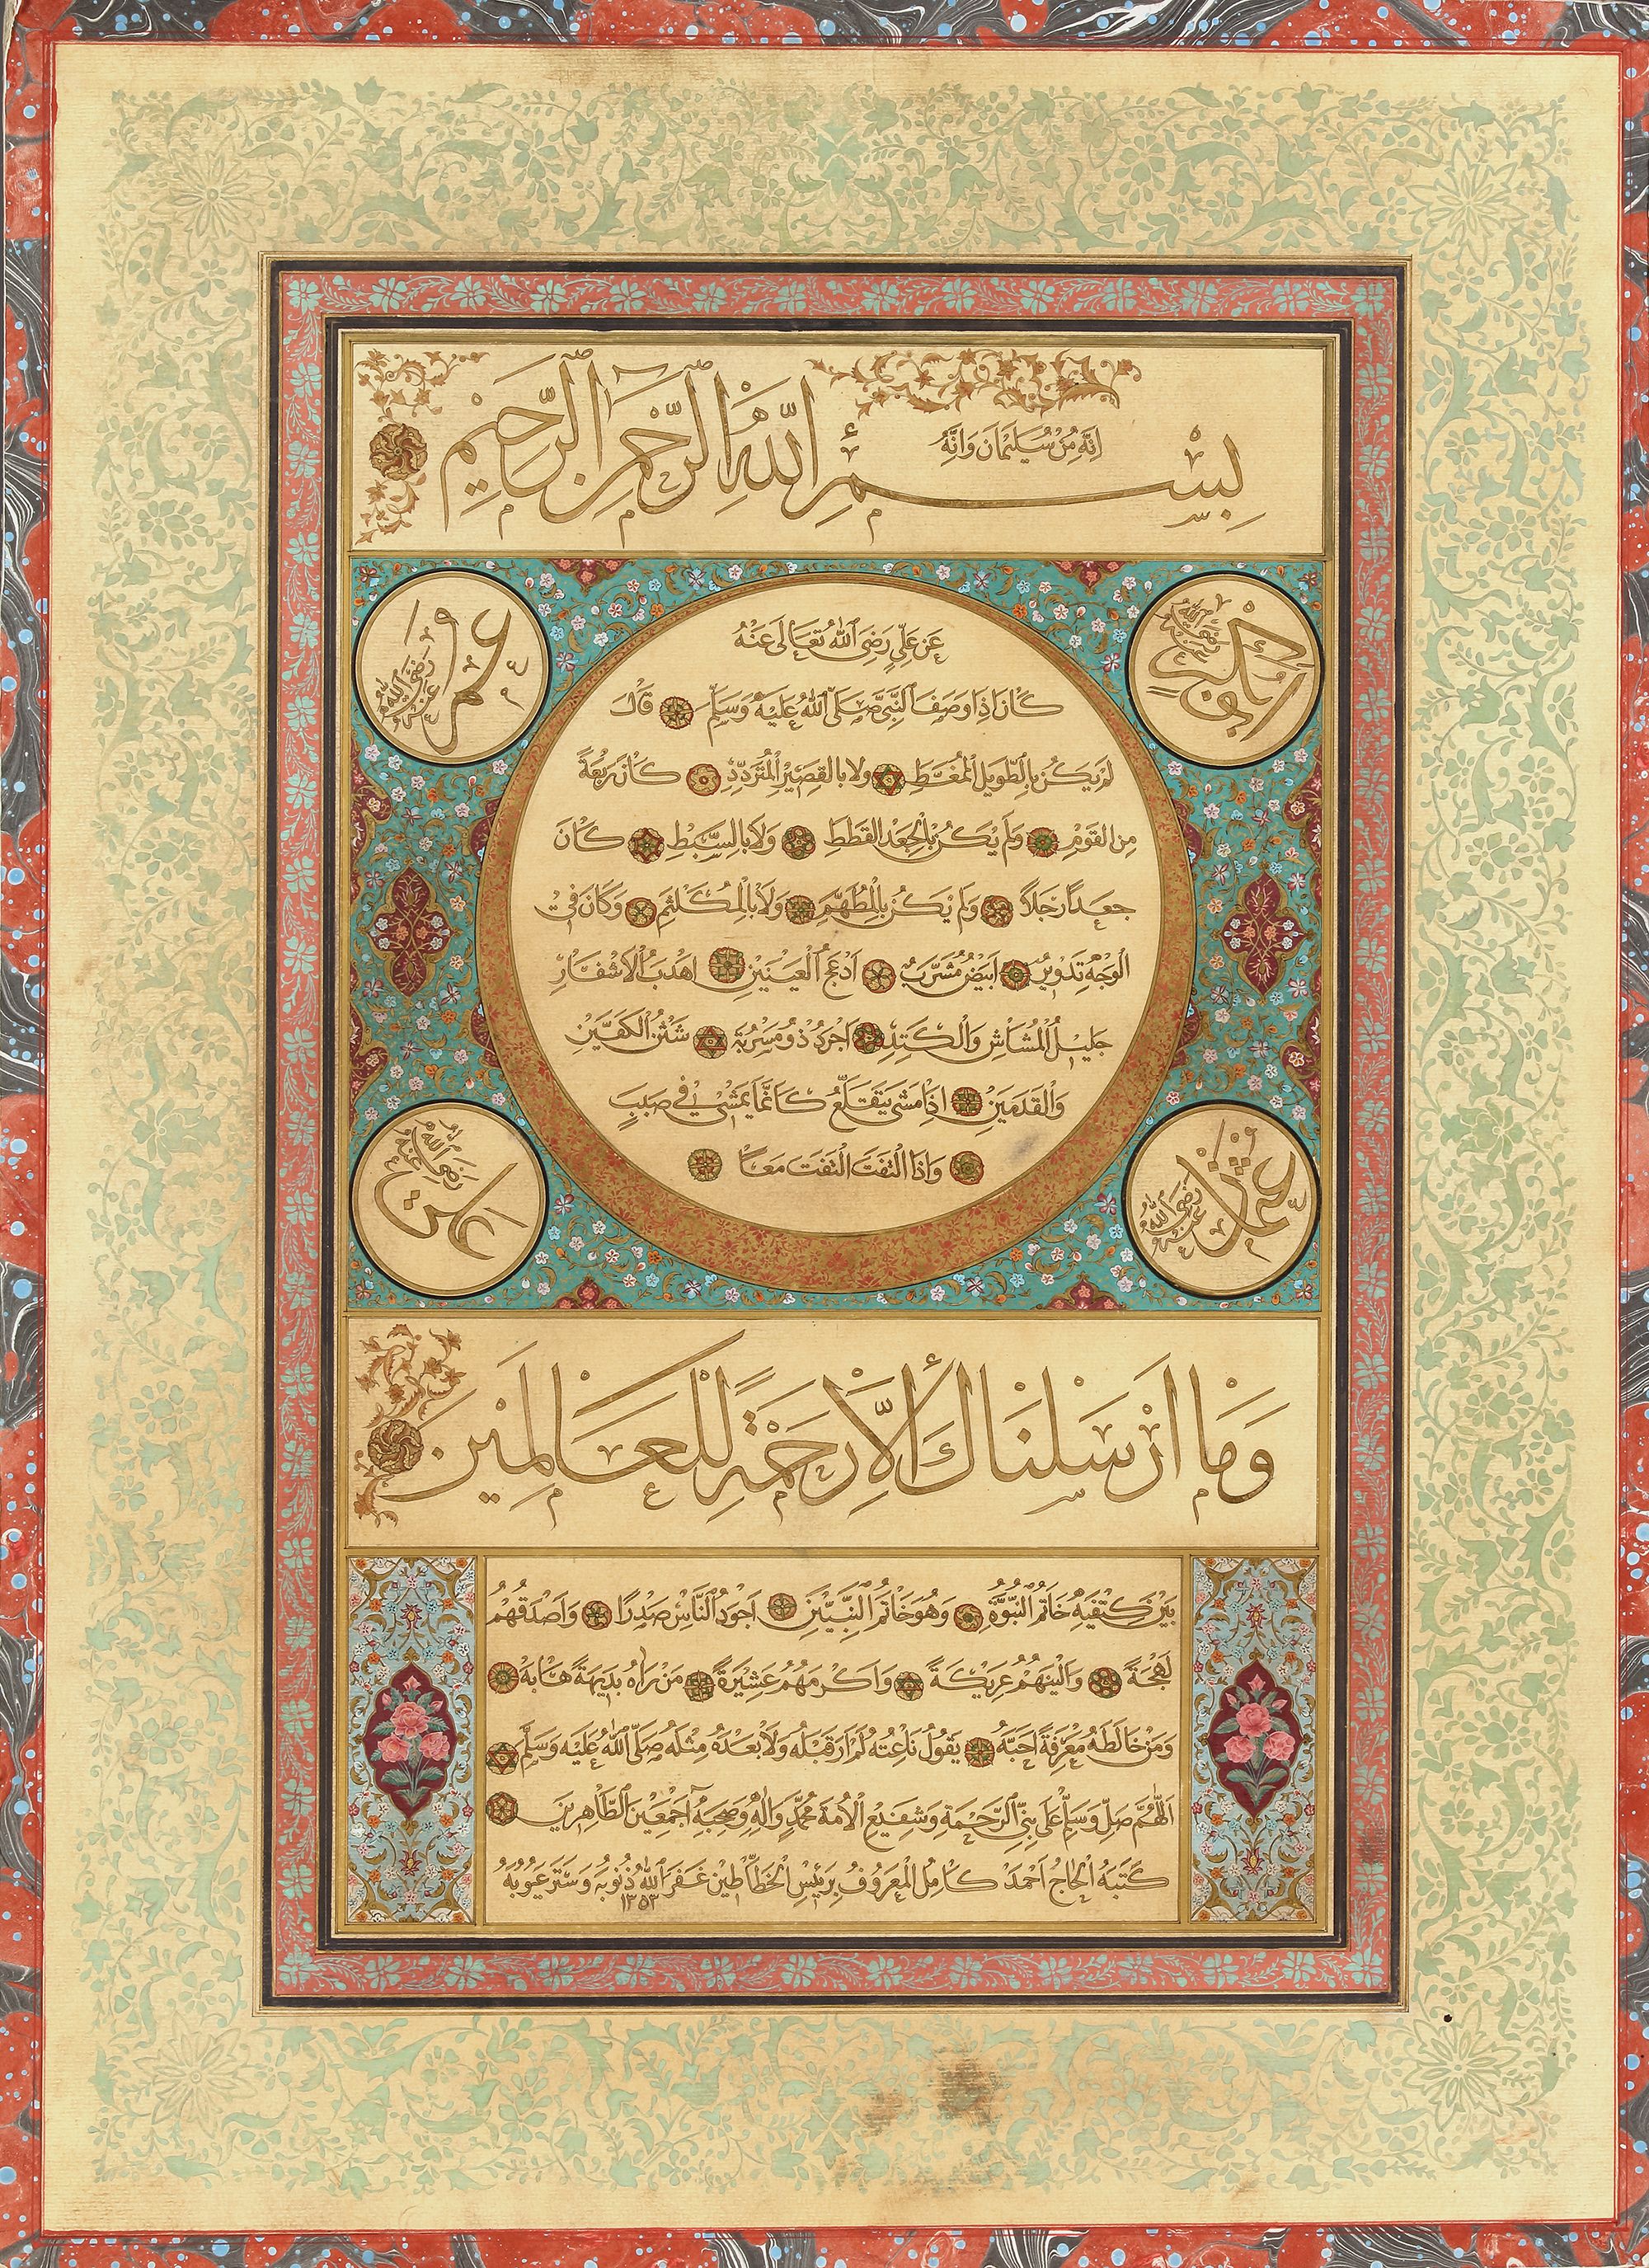 إِنَّهُ مِنْ سُلَيْمَانَ وَإِنَّهُ
بِسْمِ اللّٰهِ الرَّحْمٰنِ الرَّحِيْمِ
ابى بكر رضى الله تعالى عنه
عمر رضى الله عنه
عَنْ عَلِيٍّ رَضِيَ اللّٰهُ تَعَالَى عَنْهُ
كَانَ اِذَا وَصَفَ النَّبِىَّ صَلَّى اللّٰهُ عَلَيْهِ وَسَلَّمَ قَالَ
لَمْ يَكُنْ بِالطَّوِيلِ الْمُمَّغِطِ وَلَا بِالْقَصِيْرِ الْمُتَرَدِّدِ كَانَ رَبْعَةً
مِنَ الْقَوْمِ وَلَمْ يَكُنْ بِالْجَعْدِ الْقَطَطِ وَلَا بِالسَّبِطِ كَانَ
جَعْدًا رَجِلاً وَلَمْ يَكُنْ بِالْمُطَهَّمِ وَلَا بِالْمُكَلْثَمِ وَكَانَ فِى
الْوَجْهِ تَدْوِيْرٌ اَبْيَضُ مُشَرَّبٌ اَدْعَجُ الْعَيْنَيْنِ اَهْدَبُ الْاَشْفَارِ
جَلِيْلُ الْمُشَاشِ وَالْكَتَدِ اَجْرَدُ ذُو مَسْرُبَةٍ شَثْنُ الْكَفَّيْنِ
وَالْقَدَمَيْنِ اِذَا مَشَى يَتَقَلَّعُ كَاَنَّمَا يَمْشِى فِى صَبَبٍ
وَاِذَا الْتَفَتَ الْتَفَتَ مَعًا
عثمان رضى الله عنه
على رضى الله عنه
وَمَا اَرْسَلْنَاكَ اِلَّا رَحْمَةً لِلْعَالَمِيْنَ
بَيْنَ كَتِفَيْهِ خَاتَمُ النُّبُوَّةِ وَهُوَ خَاتَمُ النَّبِيِّيْنَ اَجْوَدُ النَّاسِ صَدْرًا وَاَصْدَقُهُمْ
لَهْجَةً وَاَلْيَنُهُمْ عَرِيْكَةً وَاَكْرَمُهُمْ عَشِيْرَةً مَنْ رَاٰهُ بَدِيْهَةً هَابَهُ
وَمَنْ خَالَطَهُ مَعْرِفَةً اَحَبَّهُ يَقُولُ نَاعِتُهُ لَمْ اَرَ قَبْلَهُ وَلَا بَعْدَهُ مِثْلَهُ صَلَّى اللّٰهُ عَلَيْهِ وَسَلَّمَ
اَللّٰهُمَّ صَلِّ وَسَلِّمْ عَلَى نَبِىِّ الرَّحْمَةِ وَشَفِيْعِ الْاُمَّةِ مُحَمَّدٍ وَاٰلِهِ وَصَحْبِهِ اَجْمَعِيْنَ الطَّاهِرِيْنَ
كَتَبَهُ الْحَاجُّ اَحْمَدْ كَامِلُ الْمَعْرُوفُ بِرَئِيْسِ الْخَطَّاطِيْنَ غَفَرَ اللّٰهُ ذُنُوبَهُ وَسَتَرَ عُيُوبَهُ
١٣٥٣